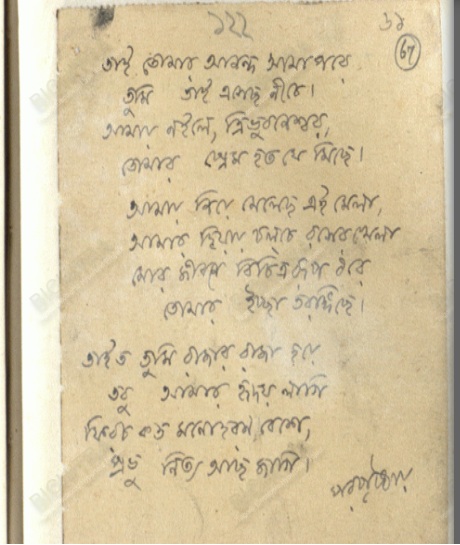 ১২২
৬৯
67
তাই তোমার আনন্দ আমার পরে
তুমি তাই এসেছ নীচে।
আমায় নইলে, ত্রিভুবনেশ্বর,
তোমার প্রেম হত যে মিছে।
আমায় নিয়ে মেলেছ এই মেলা,
আমার হিয়ায় চলচে রসের খেলা
মোর জীবনে বিচিত্ররূপ ধরে
তোমার ইচ্ছা তরঙ্গিছে।
তাইত তুমি রাজার রাজা হয়ে
তবু আমার হৃদয় লাগি
ফিরচ কত মনোহরণ বেশে,
প্রভু নিত্য আছ জাগি।